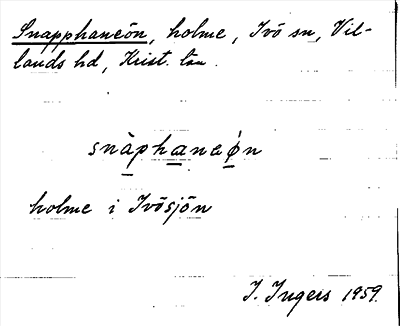 Snapphaneön, holme, Ivö sn, Vil-
lands hd, Krist. län.
snàphanaǿn
holme i Ivösjön
I. Ingers 1959.